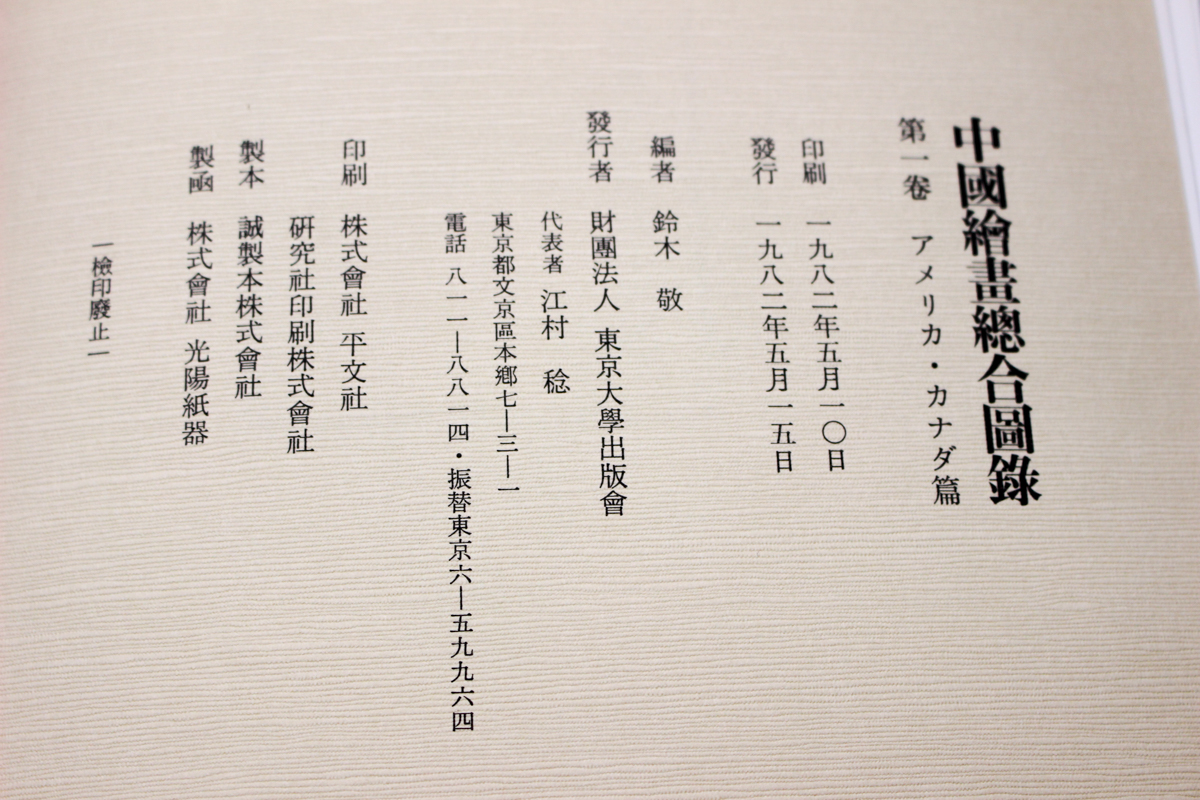 中國繪畫總合圖錄
第一卷 アメリカ・カナダ篇
印刷 一九八二年五月一〇日
發行 一九八二年五月一五日
編者 鈴木 敬
發行者 財團法人 東京大學出版會
代表者 江村 稔
東京都文京區本鄕七—三—一
電話 八一一—八八一四・振替東京六—五九九六四
印刷 株式會社 平文社
研究社印刷株式會社
製本 誠製本株式會社
製函 株式會社 光陽紙器
—檢印廢止—